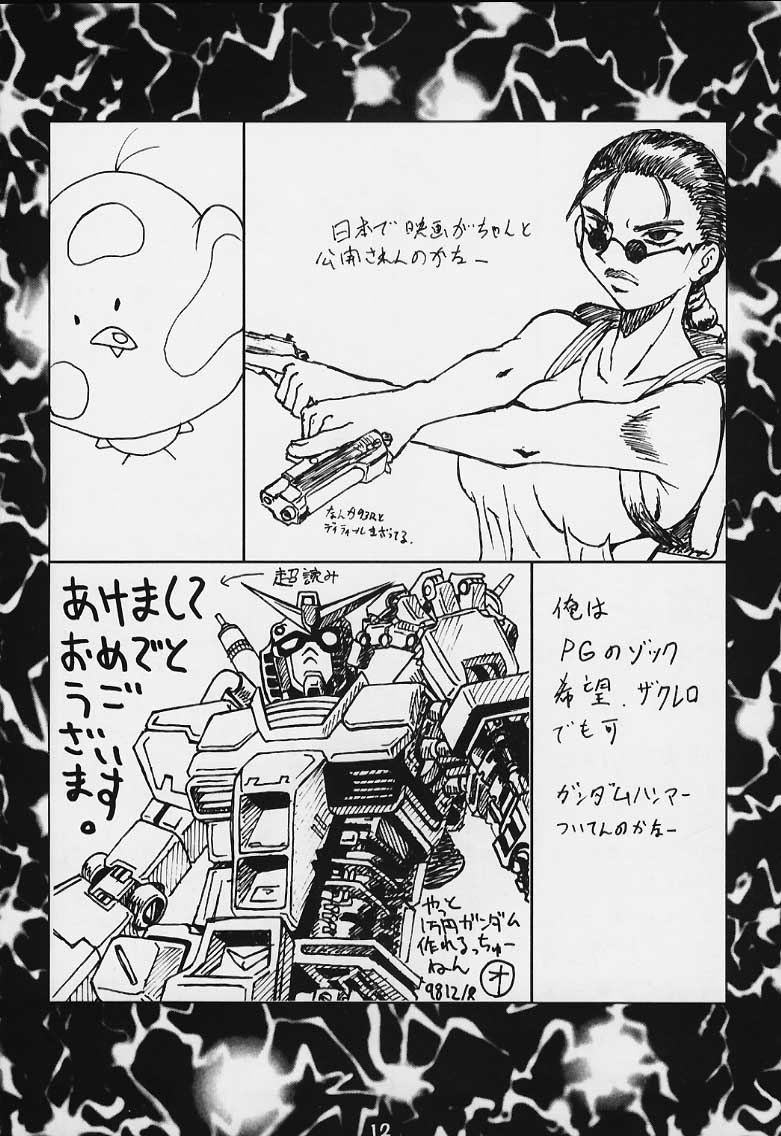 日本で映画がちゃんと
公開されんのかなー
なんか93Rと
ディティールまざってる.
超読み
あけまして
おめでと
うご
ざいす
ま。
俺は
PGのゾック
希望.ザクレロ
でも可
ガンダムハンマー
ついてんのかなー
やっと
1万円ガンダム
作れるっちゅー
ねん
オ
12